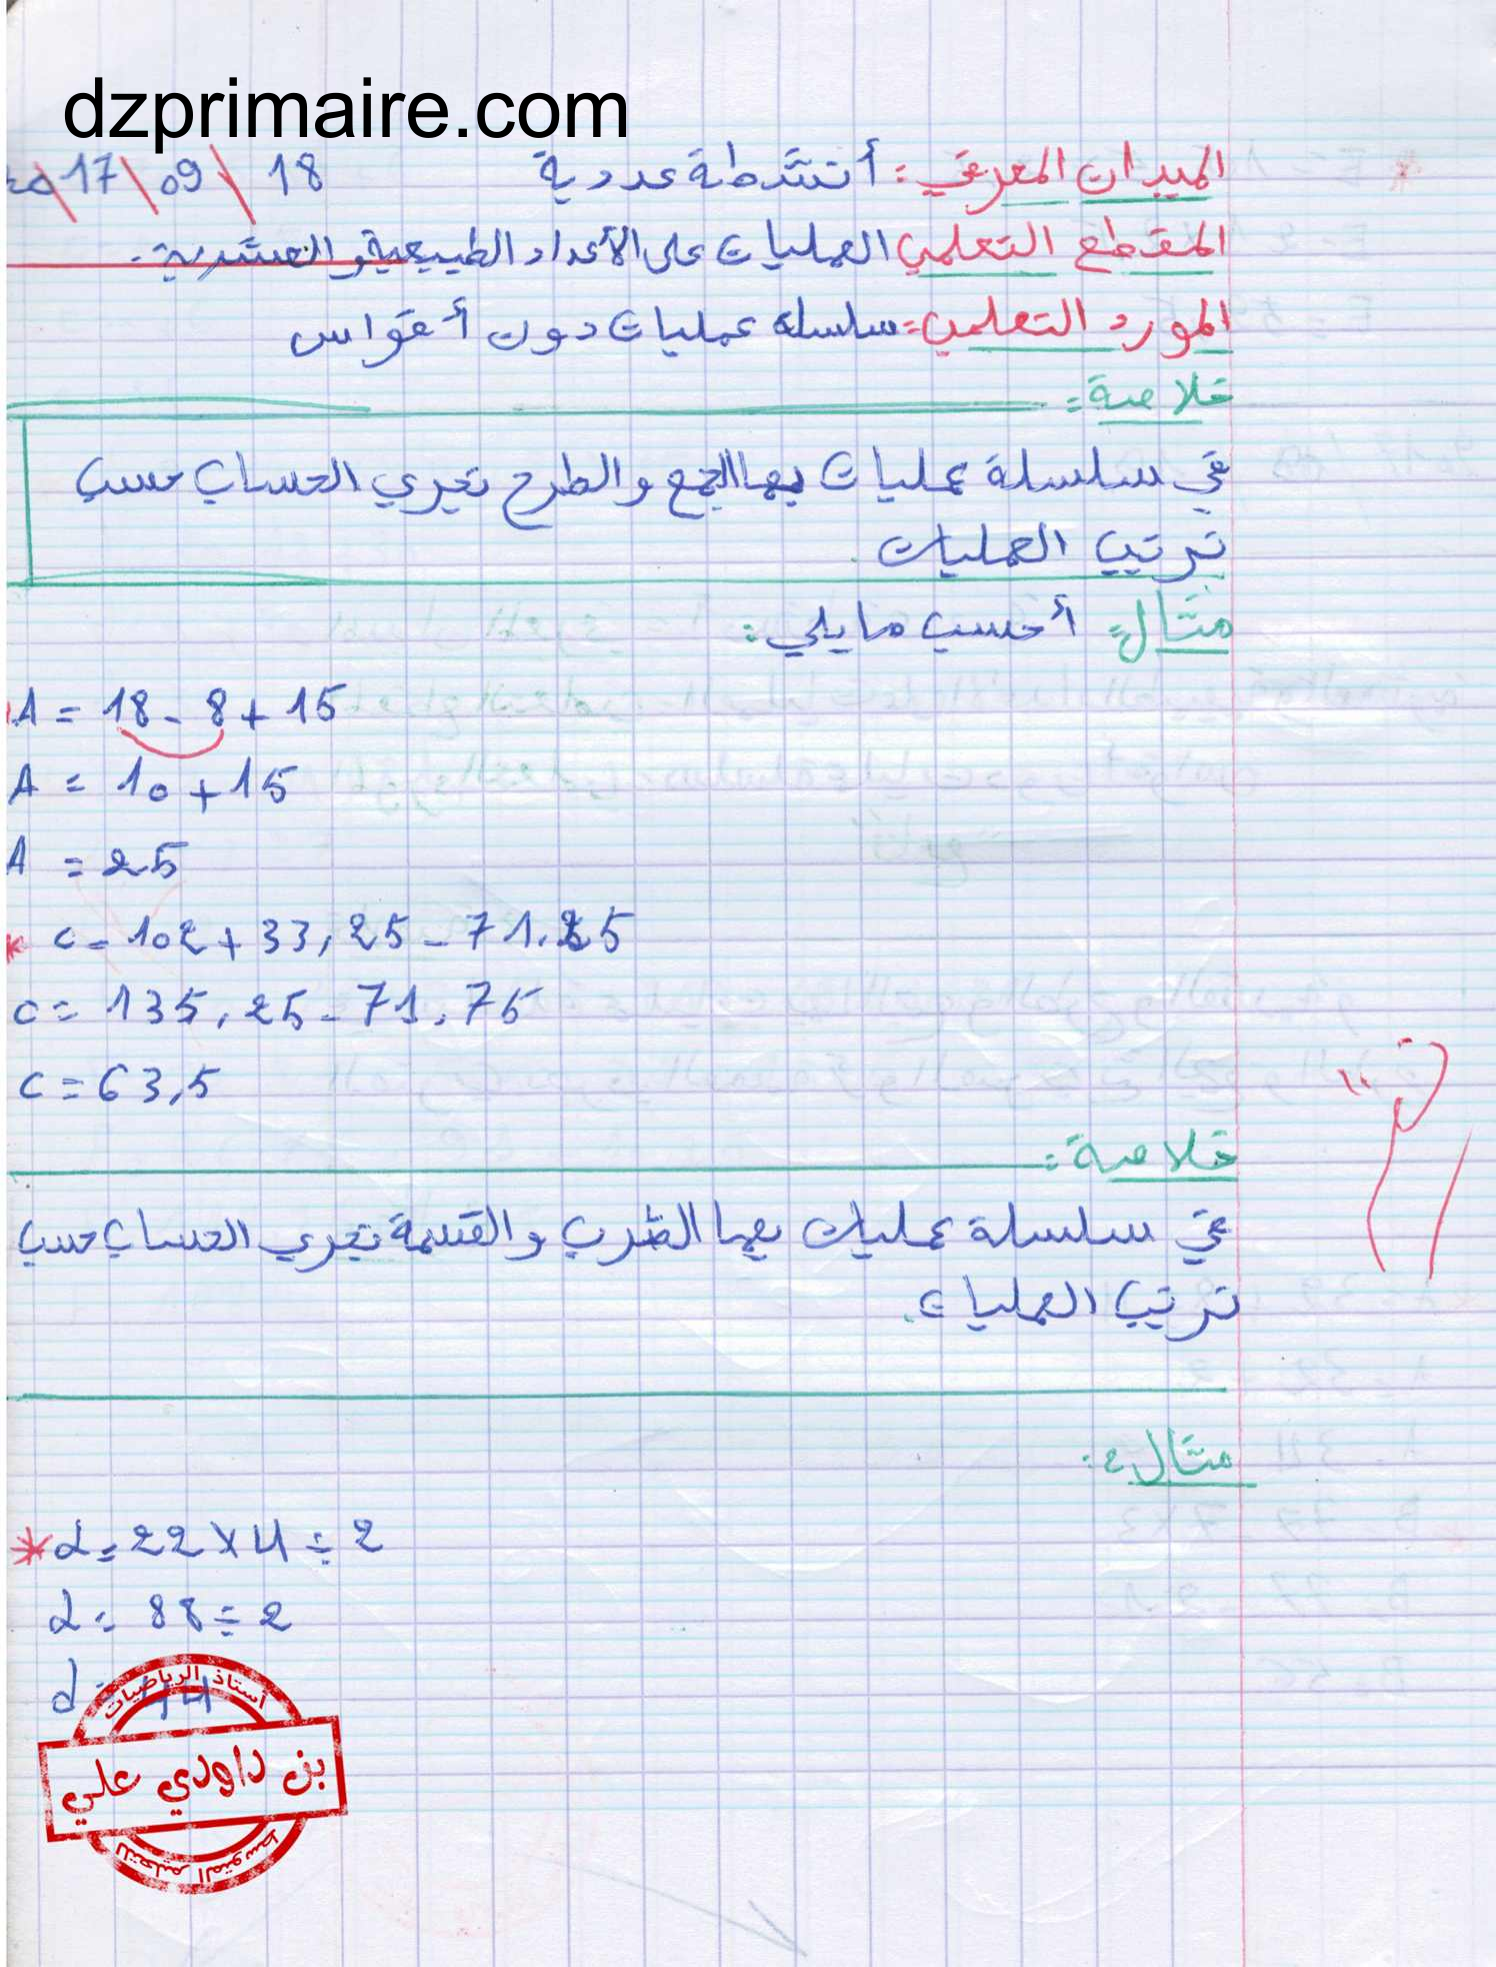 dzprimaire.com
الميدان المعرفي: أنشطة عددية 18 \ 09 \ 17
المقطع التعلمي العمليات على الأعداد الطبيعية والعشرية.
المورد التعلمي: سلسلة عمليات دون أقواس
خلاصة:
في سلسلة عمليات بها الجمع والطرح تجري الحساب حسب
ترتيب العمليات.
مثال: أحسب ما يلي:
A = 18 - 8 + 15
A = 10 + 15
A = 25
* C = 102 + 33,25 - 71,
C = 135,25 - 71,75
C = 63,5
خلاصة:
في سلسلة عمليات بها الضرب والقسمة تجري الحساب حسب
ترتيب العمليات.
مثال:
* d = 22 × 4 ÷ 2
d = 88 ÷ 2
d =
أستاذ الرياضيات
بن داودي علي
للتعليم المتوسط